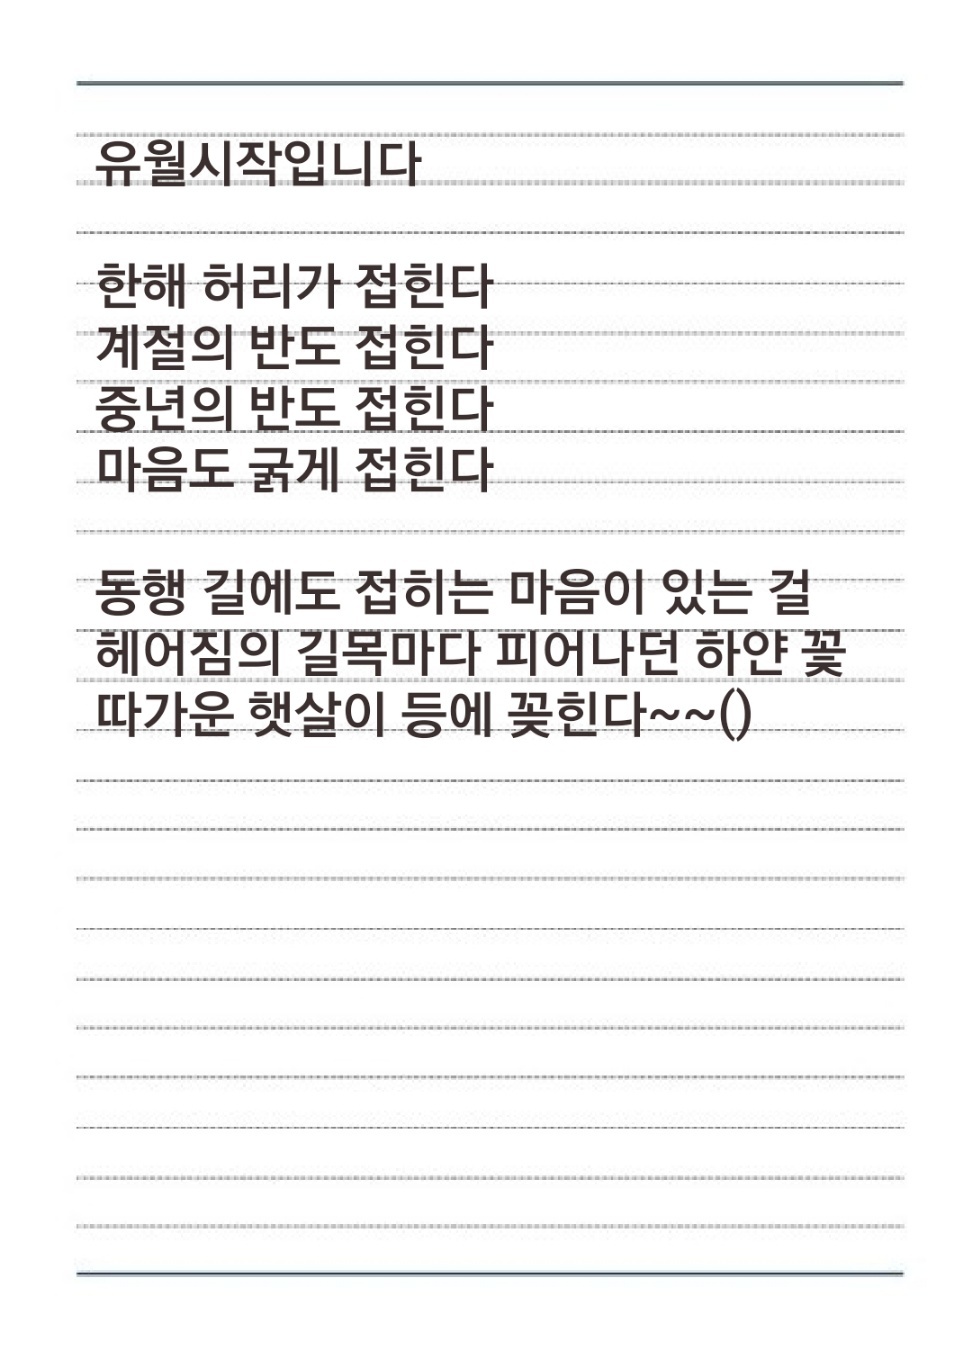 유월시작입니다
한해 허리가 접힌다
계절의 반도 접힌다
중년의 반도 접힌다
마음도 굵게 접힌다
동행 길에도 접히는 마음이 있는 걸
헤어짐의 길목마다 피어나던 하얀 꽃
따가운 햇살이 등에 꽂힌다~~()